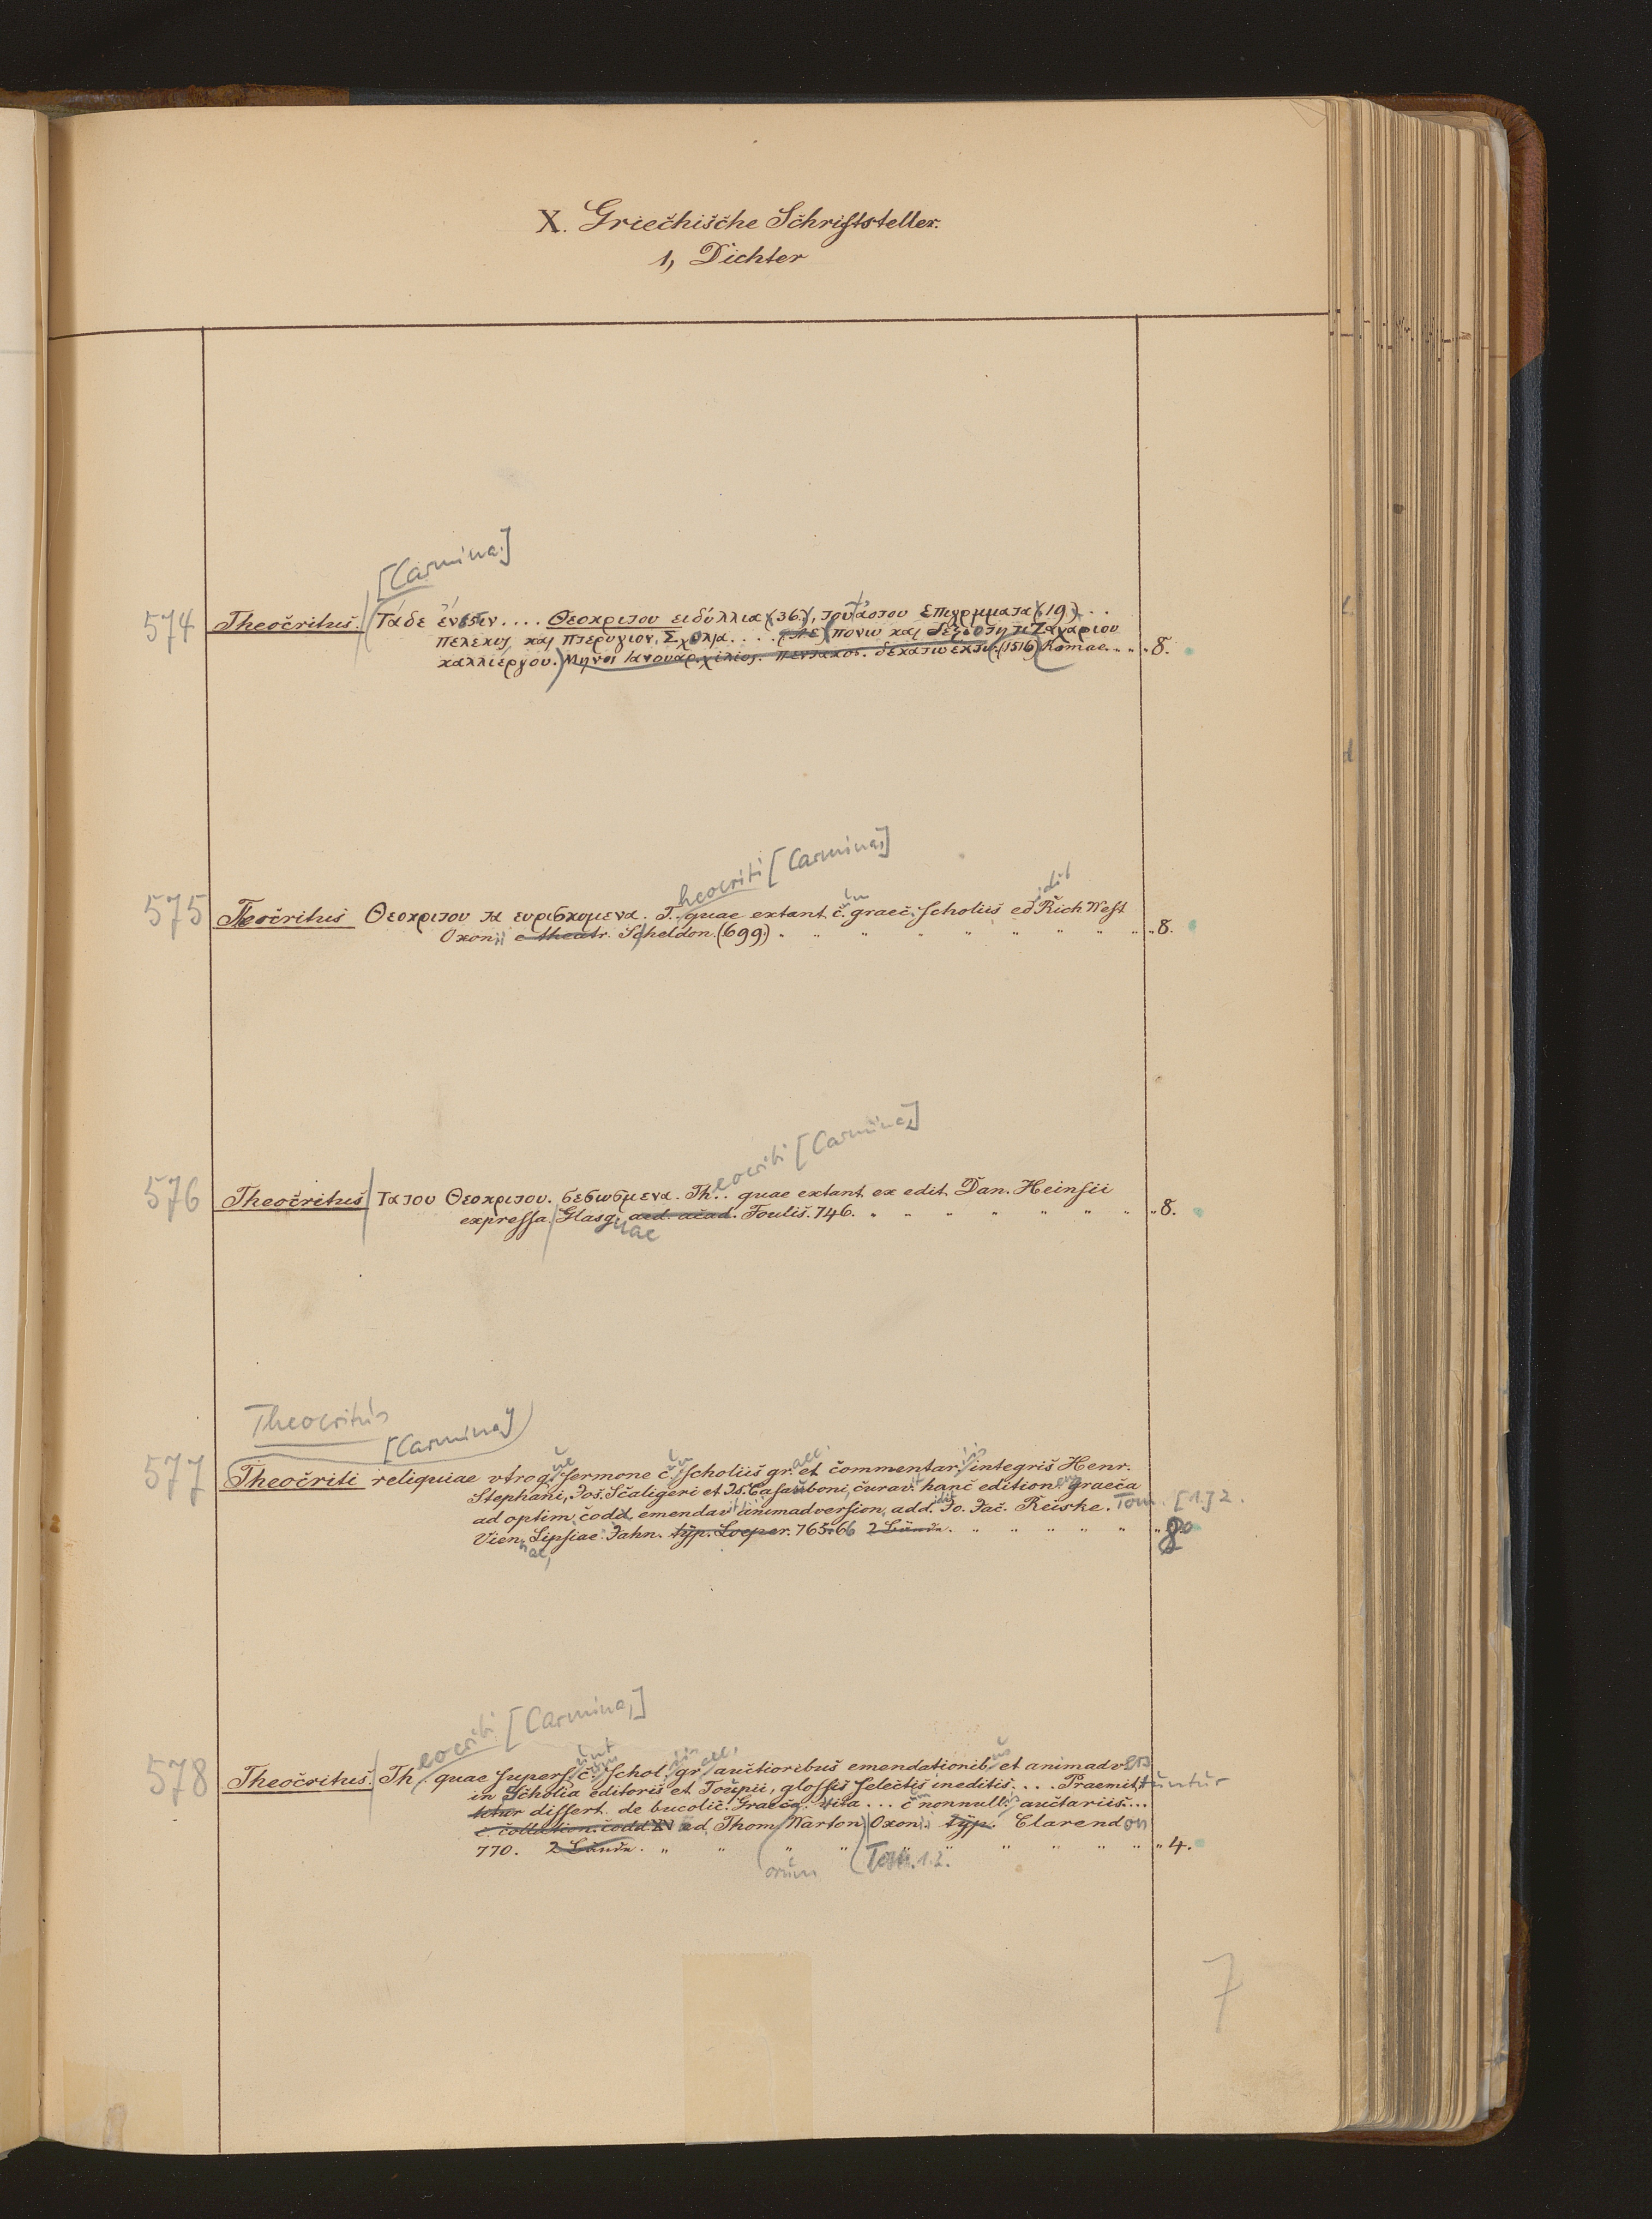 X. Griechische Schriftsteller.
1, Dichter
[Carmina.]
574 Theocritus. Τάδε ένεστιν.... Θεοκριτου ειδύλλια (36.), του αυτου Επιγρμματα (19)...
πελεκυς και πτερυγιον, Σχολια.... πονω και δεξιοτητι Ζαχαριου
καλλιέργου.) Μηνοι Ιανουαρ. χιλιος. πεντακος. δεκατω εκτω. (1516) Romae. „ „ 8.
heocriti [Carmina,]
575 Theocritus Θεοκριτου τα ευρισκομενα. T. quae extant c. graec. scholiis ed. Rich West
Oxonii e theatr. Scheldon. (699) „ „ „ „ „ „ „ „ „ 8.
eocriti [Carmina,]
576 Theocritus Τα του Θεοκριτου. σεσωσμενα. Th.. quae extant ex edit. Dan. Heinsii
expressa. Glasg. aed. acad. Foulis. 746. „ „ „ „ „ „ „ 8.
uae
Theocritus
[Carmina]
577 Theocriti reliquiae vtroq. sermone c. scholiis gr. et commentar. integris Henr.
Stephani, Jos. Scaligeri et Is. Casauboni, curav. hanc edition. graeca
ad optim. codd. emendav. animadversion, add. Jo. Jac. Reiske. Tom. [1.] 2.
Vien. Lipsiae Jahn. typ. Loeper. 765.66 2 Bände. „ „ „ „ „ 8º
nae,
eocriti [Carmina,]
578 Theocritus. Th. quae supers. c. schol. gr. auctioribus emendationib. et animadv.
in Scholia editoris et Toupii, glossis selectis ineditis.... Praemittuntur
tetur dissert. de bucolic. Graeca. vita... c. nonnull. auctariis...
c. collection. codd. XV ed. Thom. Warton) Oxonii typ. Clarendon
770. 2 Bände. „ „ „ „ „ „ „ „ „ 4.
orum (Tom. 1.2.
7